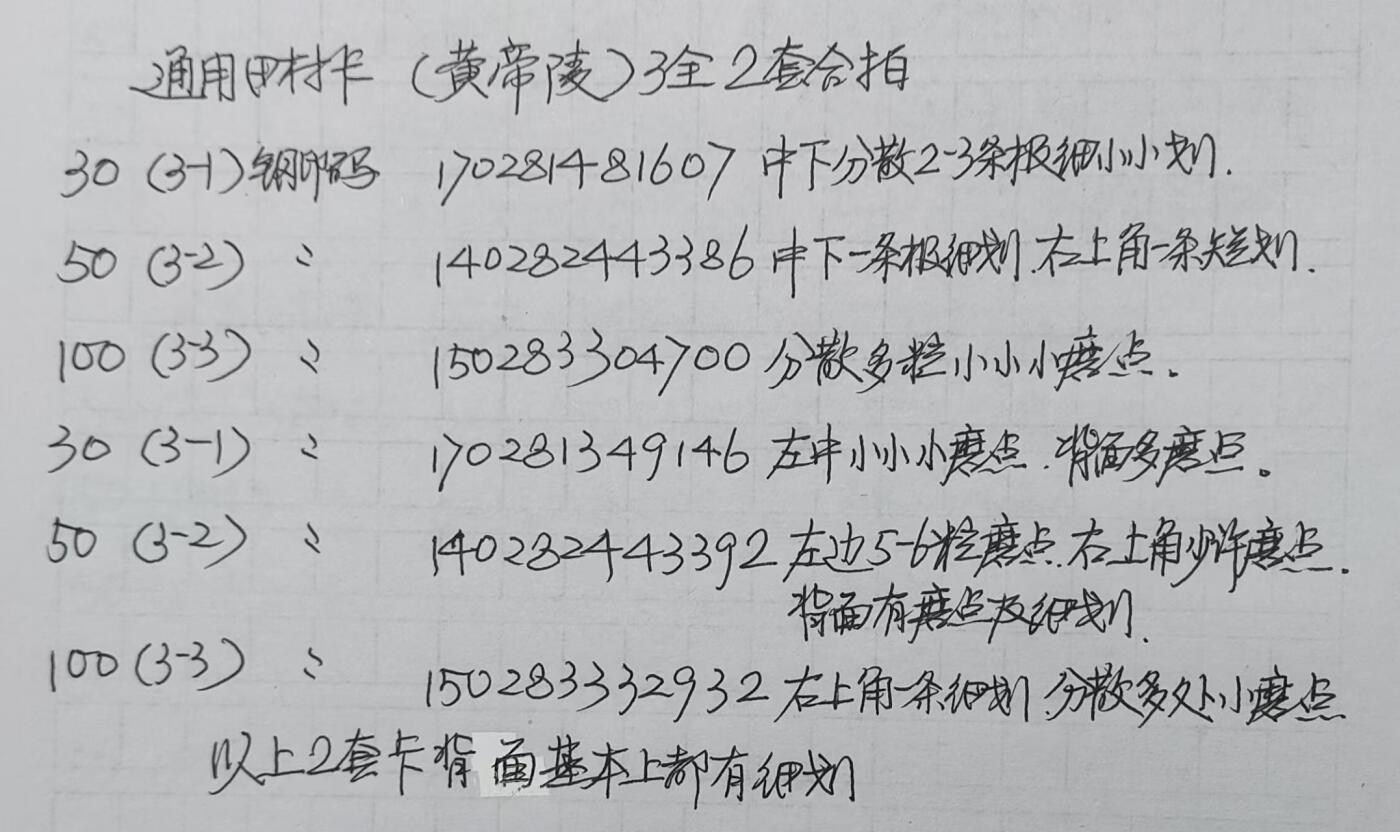 通用田村卡（黄帝陵）3全2套合拍
30 (3-1) 钢印码 170281481607 中下分散2-3条极细小小划.
50 (3-2) 〃 140282443386 中下一条极细划.右上角一条短划.
100 (3-3) 〃 150283304700 分散多粒小小小磨点。
30 (3-1) 〃 170281349146 左中小小小磨点.背面多磨点。
50 (3-2) 〃 140282443392 左边5-6粒磨点.右上角少许磨点.
背面有磨点及细划.
100 (3-3) 〃 150283332932 右上角一条细划.分散多处小磨点
以上2套卡背面基本上都有细划